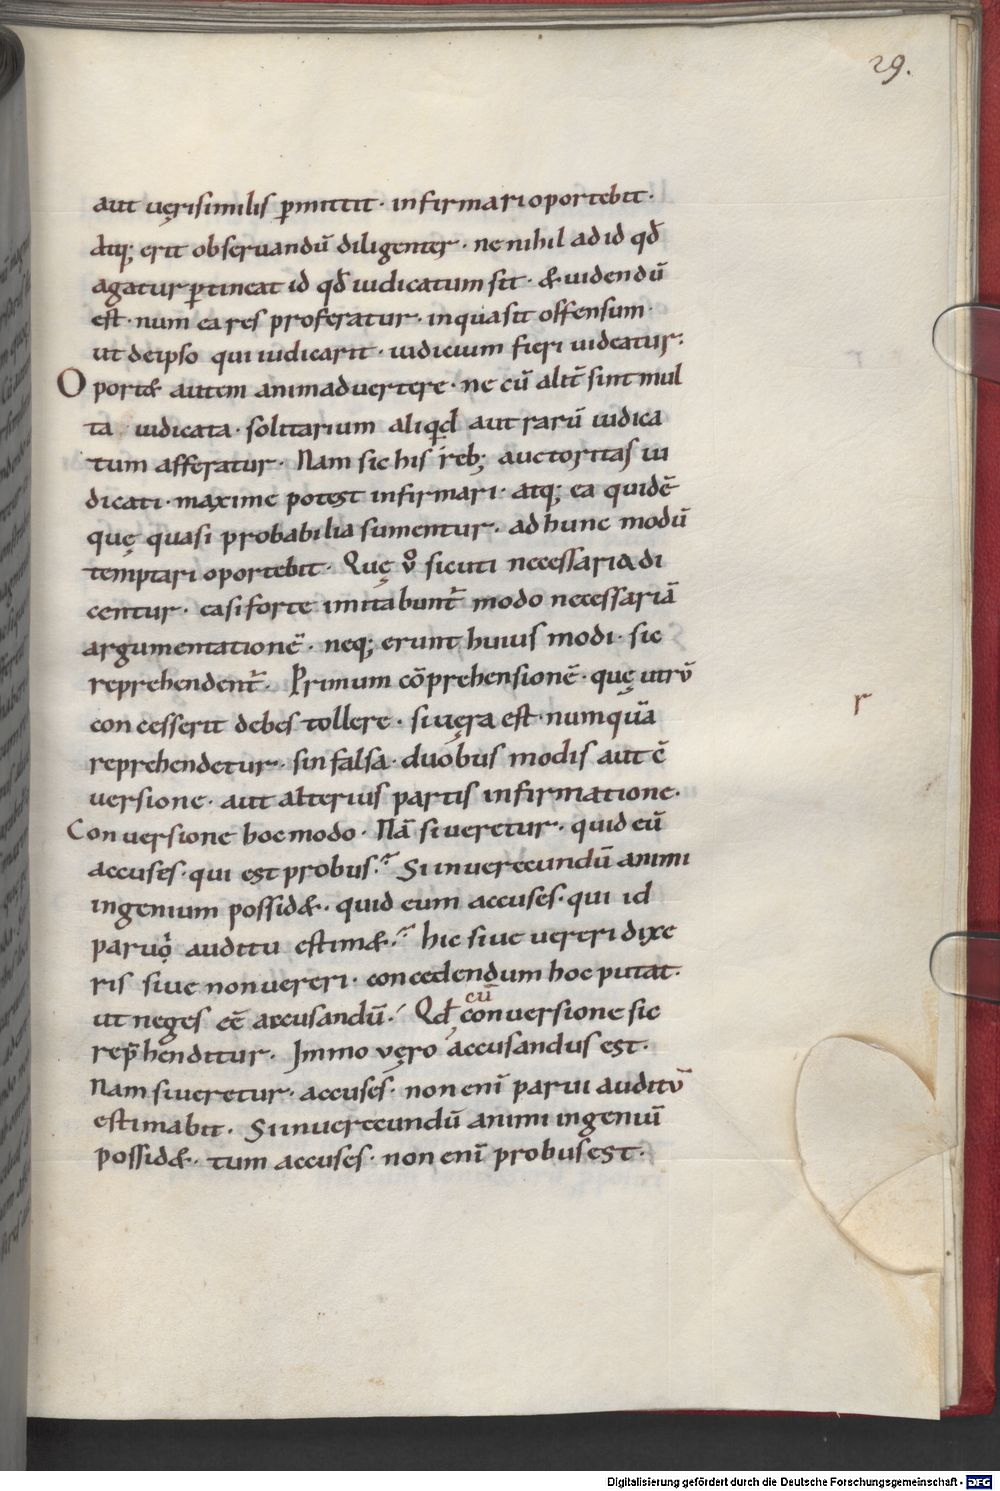 29.
aut vęrisimilis ꝑmittit· infirmari oportebit·
atq; erit obseruandū diligenter· ne nihil ad id qđ
agatur ꝑtineat id qđ iudicatum sit· & uidendū
est· num ea res proferatur· in qua sit offensum·
ut de ipso qui iudicarit· iudicium fieri uideatur:
Oport& autem animaduertere· ne cū alit̄ sint mul
ta iudicata· solitarium aliqđ aut rarū iudica
tum afferatur· Nam sic his reb; auctoritas iu
dicati· maxime potest infirmari· atq; ea quidē
quę quasi probabilia sumentur· ad hunc modū
temptari oportebit· Quę ṽ sicuti necessaria di
centur· ea si forte imitabunt̄ modo necessariā
argumentationē· neq; erunt huius modi· sic
reprehendent̄· Primum cōprehensionē· quę utrū
concesserit debes tollere· si uęra est· numquā
reprehendetur· sin falsa· duobus modis aut c̄
versione· aut alterius partis infirmatione·
Conversione hoc modo· Nā si ueretur· quid eū
accuses· qui est probus? Si inuerecundū animi
ingenium possid&· quid eum accuses· qui id
paruo auditu estim&? hic siue uereri dixe
ris siue non uereri· concedendum hoc putat·
ut neges eē accusandū· Qđ cū
conuersione sic
rep̄henditur· Immo vęro accusandus est·
Nam si ueretur· accuses· non enī parui auditū
estimabit· Si inuerecundū animi ingeniū
possid&· tum accuses· non enī probus est·
r
Digitalisierung gefördert durch die Deutsche Forschungsgemeinschaft - DFG